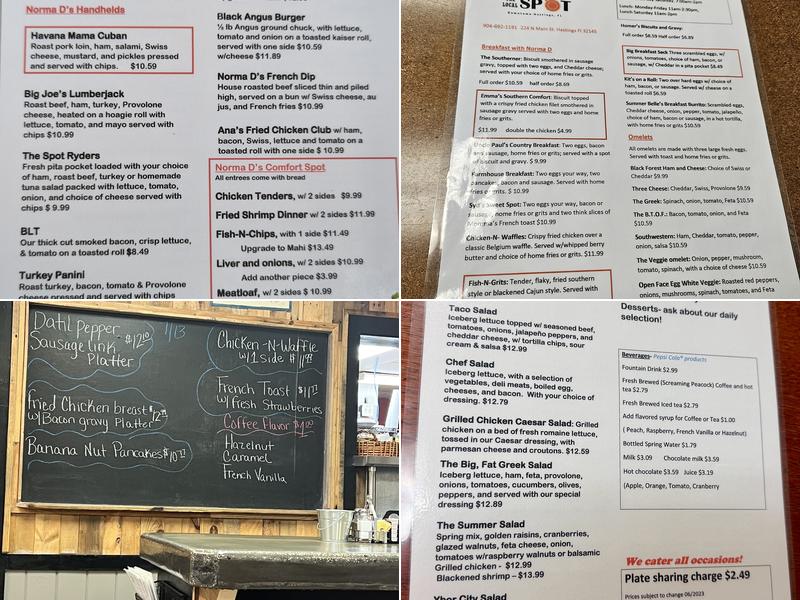 Norma D's Handhelds
Havana Mama Cuban
Roast pork loin, ham, salami, Swiss
cheese, mustard, and pickles pressed
and served with chips. $10.59
Big Joe's Lumberjack
Roast beef, ham, turkey, Provolone
cheese, heated on a hoagie roll with
lettuce, tomato, and mayo served with
chips $10.99
The Spot Ryders
Fresh pita pocket loaded with your choice
of ham, roast beef, turkey or homemade
tuna salad packed with lettuce, tomato,
onion, and choice of cheese served with
chips $ 9.99
BLT
Our thick cut smoked bacon, crisp lettuce,
& tomato on a toasted roll $8.49
Turkey Panini
Roast turkey, bacon, tomato & Provolone
cheese pressed and served with chips
Black Angus Burger
½ lb Angus ground chuck, with lettuce,
tomato and onion on a toasted kaiser roll,
served with one side $10.59
w/cheese $11.89
Norma D's French Dip
House roasted beef sliced thin and piled
high, served on a bun w/ Swiss cheese, au
jus, and French fries $10.99
Ana's Fried Chicken Club w/ ham,
bacon, Swiss, lettuce and tomato on a
toasted roll with one side $ 10.99
Norma D's Comfort Spot
All entrees come with bread
Chicken Tenders, w/ 2 sides $9.99
Fried Shrimp Dinner w/ 2 sides $11.99
Fish-N-Chips, with 1 side $11.49
Upgrade to Mahi $13.49
Liver and onions, w/ 2 sides $10.99
Add another piece $3.99
Meatloaf, w/ 2 sides $ 10.99
THE LOCAL SPOT
Downtown Hastings, FL
904-692-1191 224 N Main St. Hastings Fl 32145
Breakfast with Norma D
The Southerner: Biscuit smothered in sausage
gravy, topped with two eggs, and Cheddar cheese;
served with your choice of home fries or grits.
Full order $10.59 half order $8.69
Emma's Southern Comfort: Biscuit topped
with a crispy fried chicken filet smothered in
sausage gravy served with two eggs and home
fries or grits.
$11.99 double the chicken $4.99
Uncle Paul's Country Breakfast: Two eggs, bacon
and sausage, home fries or grits; served with a spot
of biscuit and gravy. $ 9.99
Farmhouse Breakfast: Two eggs your way, two
pancakes, bacon and sausage. Served with home
fries or grits. $ 10.99
Syd's Sweet Spot: Two eggs your way, bacon or
sausage, home fries or grits and two think slices of
Momma's French toast $10.99
Chicken-N- Waffles: Crispy fried chicken over a
classic Belgium waffle. Served w/whipped berry
butter and choice of home fries or grits. $11.99
Fish-N-Grits: Tender, flaky, fried southern
style or blackened Cajun style. Served with
Lunch: Monday-Friday 11am-2:30pm,
Lunch Saturday 11am-2pm
Homer's Biscuits and Gravy:
Full order $8.59 Half order $6.89
Big Breakfast Sack Three scrambled eggs, w/
onions, tomatoes, choice of ham, bacon, or
sausage, w/ Cheddar in a pita pocket $8.49
Kit's on a Roll: Two over hard eggs w/ choice of
ham, bacon, or sausage. Served w/ cheese on a
toasted roll $6.59
Summer Belle's Breakfast Burrito: Scrambled eggs,
Cheddar cheese, onion, pepper, tomato, jalapeño,
choice of ham, bacon or sausage, in a hot tortilla,
with home fries or grits $10.59
Omelets
All omelets are made with three large fresh eggs.
Served with toast and home fries or grits.
Black Forest Ham and Cheese: Choice of Swiss or
Cheddar $9.99
Three Cheese: Cheddar, Swiss, Provolone $9.59
The Greek: Spinach, onion, tomato, Feta $10.59
The B.T.O.F.: Bacon, tomato, onion, and Feta
$10.59
Southwestern: Ham, Cheddar, tomato, pepper,
onion, salsa $10.59
The Veggie omelet: Onion, pepper, mushroom,
tomato, spinach, with a choice of cheese $10.59
Open Face Egg White Veggie: Roasted red peppers,
onions, mushrooms, spinach, tomatoes, and Feta
1/13
Datil Pepper
Sausage link $12.00
Platter
Fried Chicken breast
w/Bacon gravy Platter
Banana Nut Pancakes
Chicken-N-Waffle
w/1 side
French Toast
w/fresh Strawberries
Coffee Flavor $1.00
Hazelnut
Caramel
French Vanilla
Taco Salad
Iceberg lettuce topped w/ seasoned beef,
tomatoes, onions, jalapeño peppers, and
cheddar cheese, w/ tortilla chips, sour
cream & salsa $12.99
Chef Salad
Iceberg lettuce, with a selection of
vegetables, deli meats, boiled egg,
cheeses, and bacon. With your choice of
dressing. $12.79
Grilled Chicken Caesar Salad: Grilled
chicken on a bed of fresh romaine lettuce,
tossed in our Caesar dressing, with
parmesan cheese and croutons. $12.59
The Big, Fat Greek Salad
Iceberg lettuce, ham, feta, provolone,
onions, tomatoes, cucumbers, olives,
peppers, and served with our special
dressing $12.89
The Summer Salad
Spring mix, golden raisins, cranberries,
glazed walnuts, feta cheese, onion,
tomatoes w/raspberry walnuts or balsamic
Grilled chicken - $12.99
Blackened shrimp – $13.99
Ybor City Salad
Desserts- ask about our daily
selection!
Beverages- Pepsi Cola® products
Fountain Drink $2.99
Fresh Brewed (Screaming Peacock) Coffee and hot
tea $2.79
Fresh Brewed Iced tea $2.79
Add flavored syrup for Coffee or Tea $1.00
( Peach, Raspberry, French Vanilla or Hazelnut)
Bottled Spring Water $1.79
Milk $3.09 Chocolate milk $3.59
Hot chocolate $3.59 Juice $3.19
(Apple, Orange, Tomato, Cranberry
We cater all occasions!
Plate sharing charge $2.49
Prices subject to change 06/2023